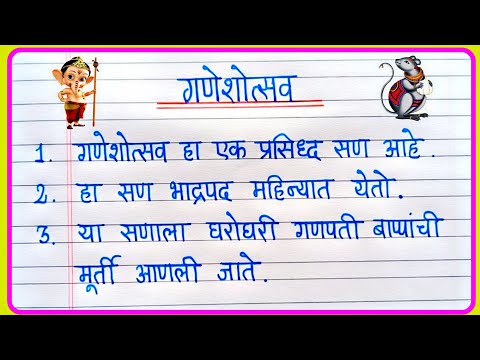 गणेशोत्सव
1. गणेशोत्सव हा एक प्रसिध्द सण आहे.
2. हा सण भाद्रपद महिन्यात येतो.
3. या सणाला घरोघरी गणपती बाप्पांची
मूर्ती आणली जाते.